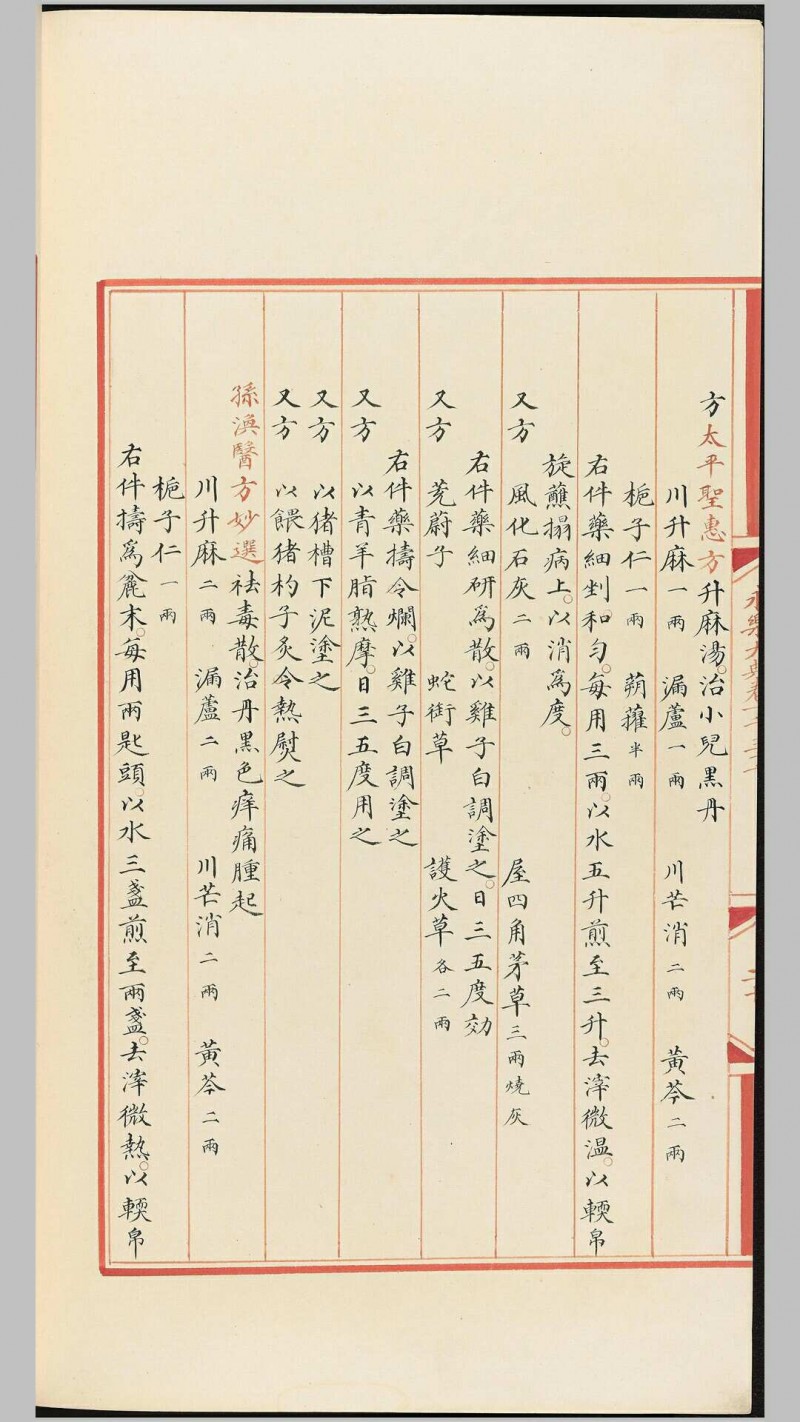 方太平聖惠方升麻湯。治小兒黑丹
川升麻一兩 漏蘆一兩 川芒消二兩 黃芩二兩
梔子仁一兩 蒴藋半兩
右件藥細剉。和勻。每用三兩。以水五升煎至三升。去滓微溫。以輭帛
旋蘸搨病上。以消為度。
又方 風化石灰二兩 屋四角茅草三兩燒灰
右件藥細研為散。以雞子白調塗之。日三五度効
又方 茺蔚子 蛇銜草 護火草各二兩
右件藥擣令爛。以雞子白調塗之
又方 以青羊脂熟摩。日三五度用之
又方 以猪槽下泥塗之
又方 以餵猪杓子炙令熱熨之
孫渙醫方妙選祛毒散。治丹黑色痒痛腫起
川升麻二兩 漏蘆二兩 川芒消二兩 黃芩二兩
梔子仁一兩
右件擣為麄末。每用兩匙頭。以水三盞煎至兩盞。去滓微熱。以輭帛